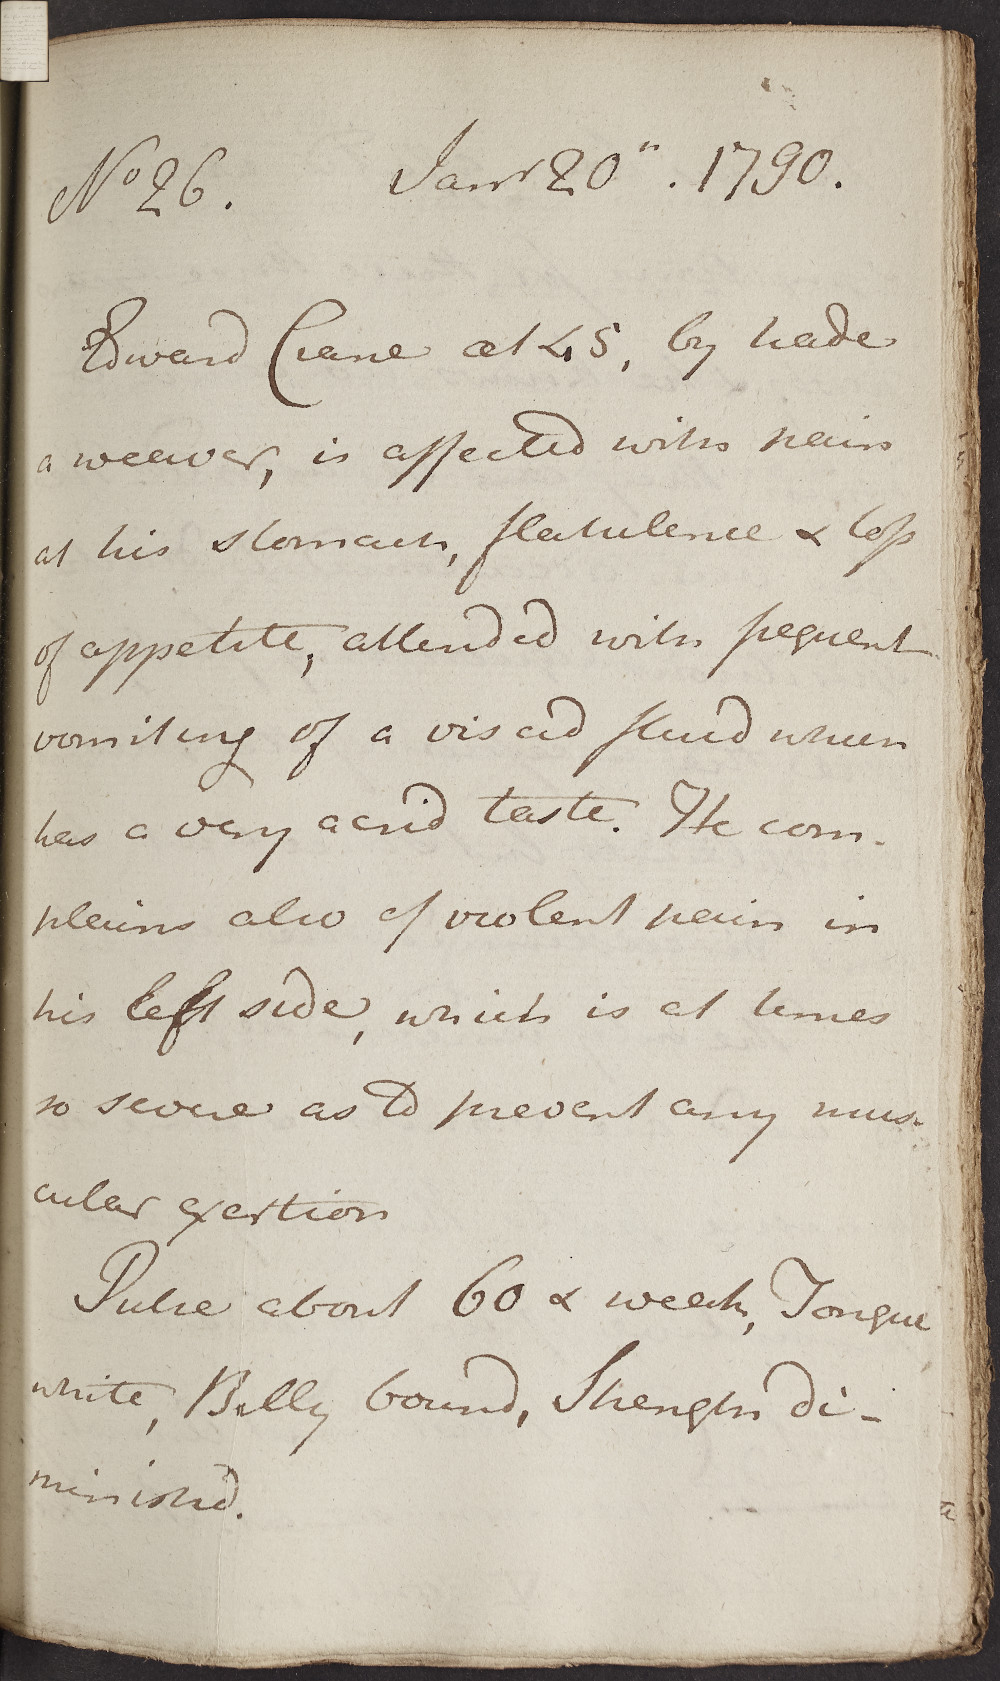 No 26. Janr 20". 1790.
Edward Crane æt 45, by trade
a weaver, is affected with pain
at his stomach, flatulence & loss
of appetite, attended with frequent
vomiting of a viscid fluid which
has a very acrid taste. He com-
plains also of violent pain in
his left side, which is at times
so severe as to prevent any mus-
cular exertion
Pulse about 60 & weak, Tongue
white, Belly bound, Strength di-
minish'd.